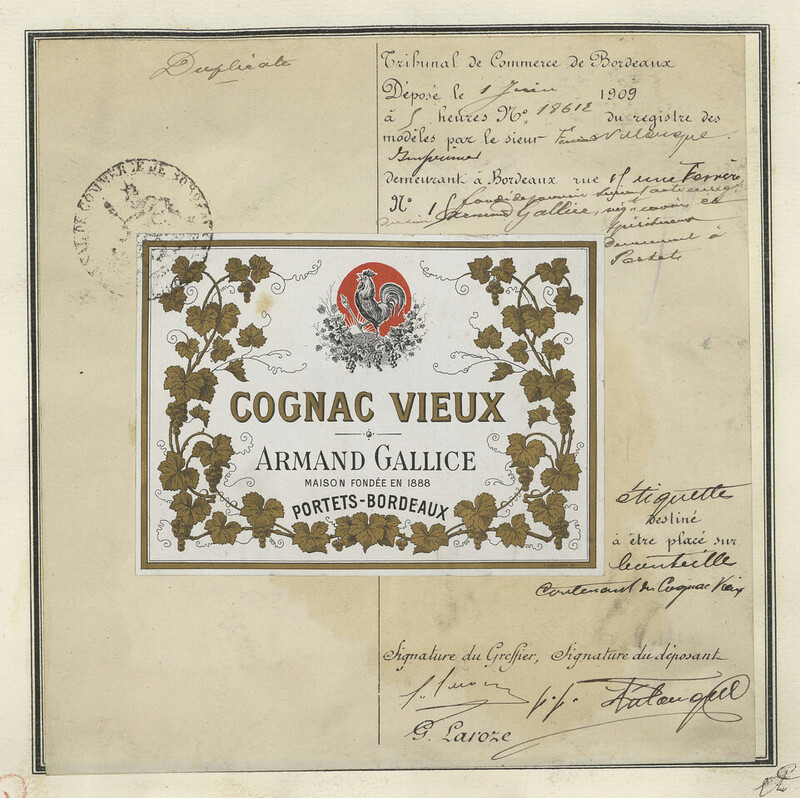 Duplicata
Tribunal de Commerce de Bordeaux
Déposé le 1 Juin 1909
à 5 heures No. 18612 du registre des
modèles par le sieur
Imprimeur
demeurant à Bordeaux rue
No 15
Armand Gallice, en
spiritueux
demeurant à
Portets
COGNAC VIEUX
ARMAND GALLICE
MAISON FONDÉE EN 1888
PORTETS-BORDEAUX
étiquette
Destiné
à être placé sur
bouteille
contenant du Cognac Vieux
Signature du Greffier, Signature du déposant
p.p.
G. Laroze